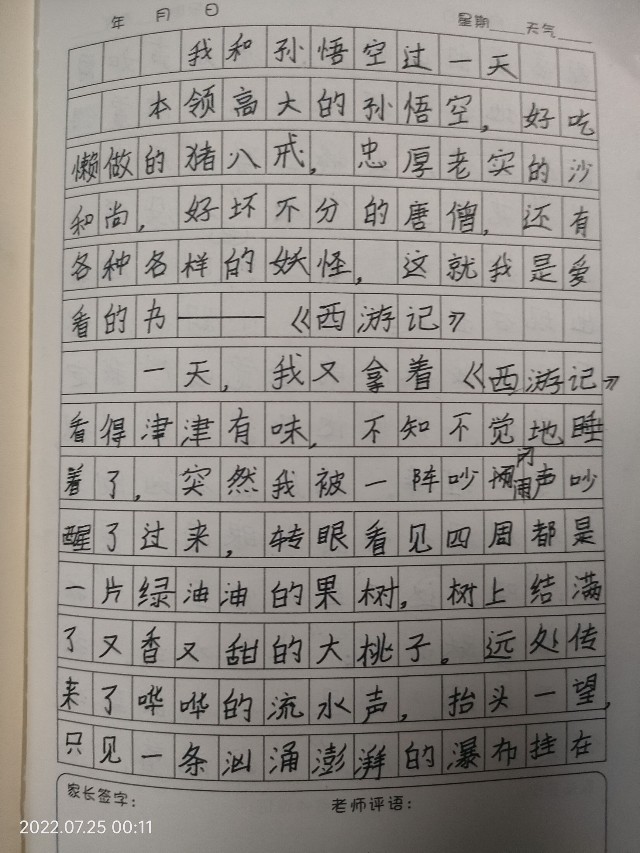 年 月 日 星期____天气____
我和孙悟空过一天
本领高大的孙悟空，好吃
懒做的猪八戒，忠厚老实的沙
和尚，好坏不分的唐僧，还有
各种各样的妖怪，这就我是爱
看的书——《西游记》
一天，我又拿着《西游记》
看得津津有味，不知不觉地睡
着了，突然我被一阵吵闹声吵
醒了过来，转眼看见四周都是
一片绿油油的果树，树上结满
了又香又甜的大桃子。远处传
来了哗哗的流水声，抬头一望，
只见一条汹涌澎湃的瀑布挂在
家长签字： 老师评语：
2022.07.25 00:11